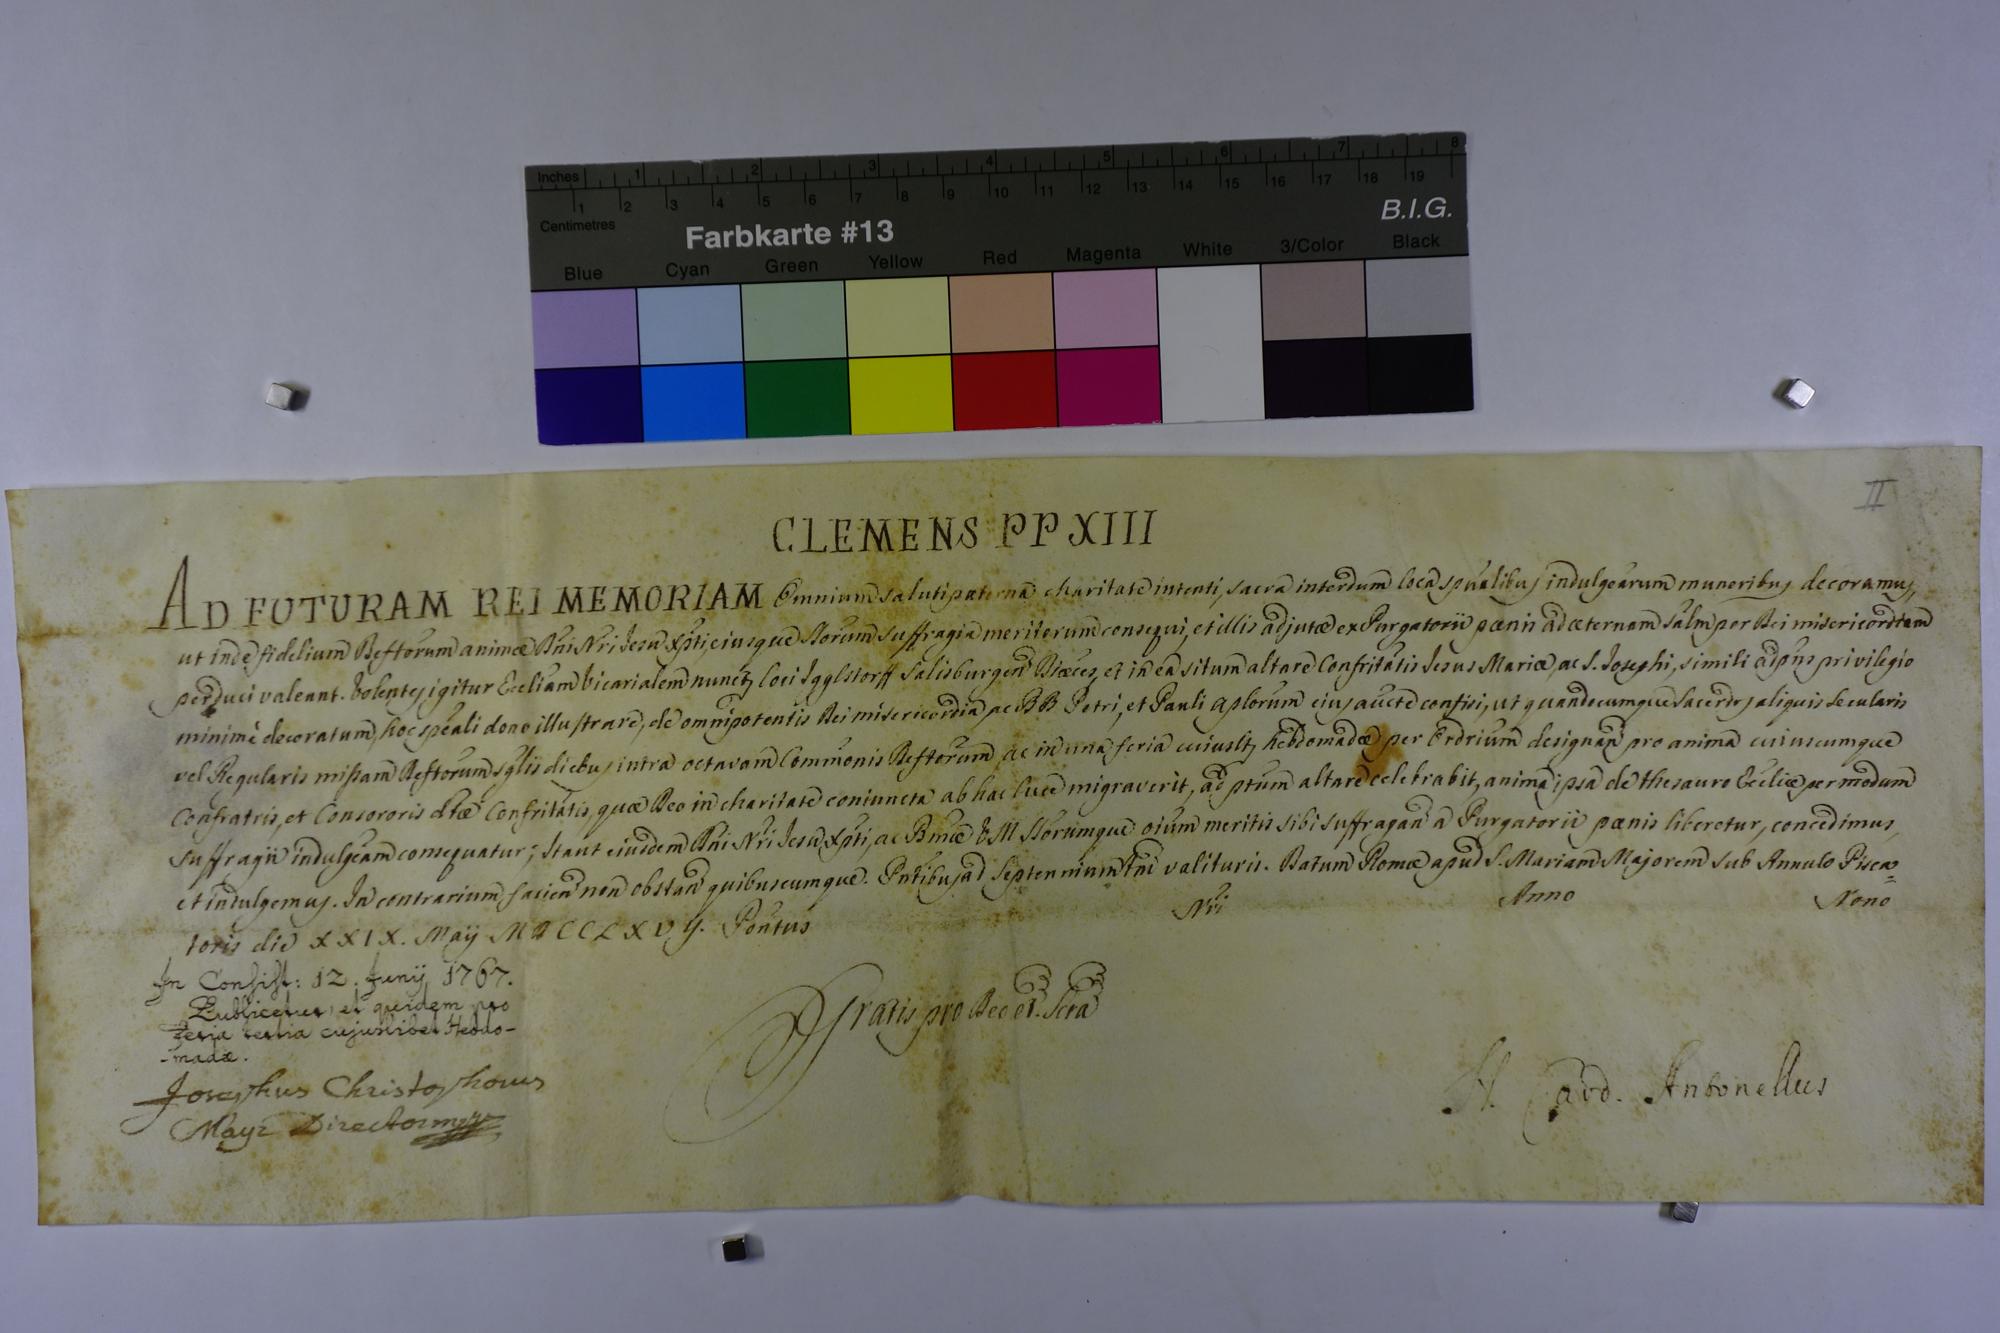 Inches 1 2 3 4 5 6 7 8
1 2 3 4 5 6 7 8 9 10 11 12 13 14 15 16 17 18 19
Centimetres
Farbkarte #13
B.I.G.
Blue Cyan Green Yellow Red Magenta White 3/Color Black
II
CLEMENS PP XIII
AD FUTURAM REI MEMORIAM Omnium saluti paterna charitate intenti, sacra interdum loca spũalibus indulgearum muneribus decoramus,
ut inde fidelium Deftorum animæ Dni Nri Jesu Xpti, eiusque Storum suffragia meritorum consequi, et illis adjutæ ex Purgatorii pænis ad æternam salm per Dei misericordiam
perduci valeant. Volentes igitur Eccliam Vicarialem nuncz loci Igglstorff Salisburgen Diæces, et in ea situm altare Confritatis Jesus Mariæ, ac S. Josephi, simili adpns privilegio
minime decoratum, hoc speali dono illustrare, de omnipotentis Dei misericordia, ac BB Petri, et Pauli Aplorum eius aucte confisi, ut quandocumque Sacerdos aliquis Secularis
vel Regularis missam Deftorum sglis diebus intra octavam Commonis Deftorum, ac in una feria cuiuslt hebdomadæ per Ordrium designan pro anima cuiuscumque
Confratris, et Consororis dtæ Confritatis, quæ Deo in charitate coniuncta ab hac luce migraverit, ad ptum altare celebrabit, anima ipsa de thesauro Eccliæ per modum
suffragii indulgeam consequatur; Ita ut eiusdem Dni Nri Jesu Xpti, ac Bmæ V. M Storumque oium meritis sibi suffragan a Purgatorii pænis liberetur, concedimus,
et indulgemus. In contrarium facien non obstan quibuscumque. Pntibus ad Septennium tm valituris. Datum Romæ apud S. Mariam Majorem sub Annulo Pisca=
toris die XXIX. Maij MDCCLXVIJ. Pontus Nri Anno Nono
In Consist: 12. Junij 1767.
Publicetur, et quidem pro
Feria tertia cujuslibet Hebdo-
-madæ.
Josephus Christophorus
Mayr Director mpr
Gratis pro Deo et Scra
N. Card. Antonellus